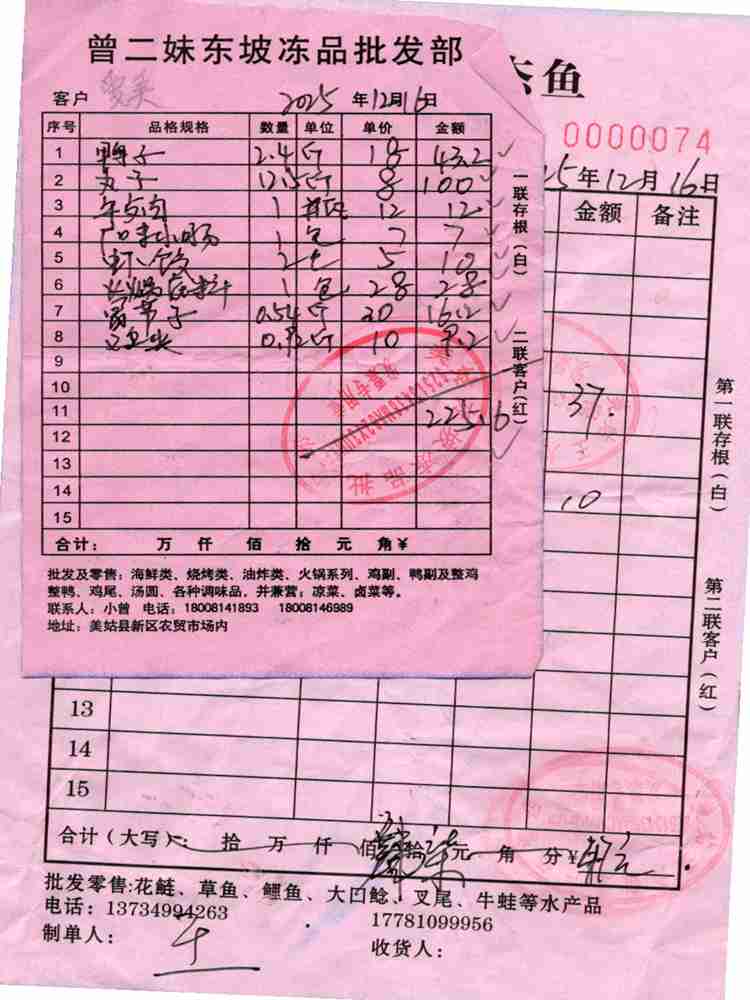 曾二妹东坡冻品批发部
客户 2025 年12月16日
序号 品格规格 数量 单位 单价 金额
1 鸭子 2.4 斤 18 43.2
2 丸子 12.5 斤 8 100
3 年贞肉 1 12 12
4 广味小肠 1 包 7 7
5 虾饺 2 包 5 10
6 火锅底料 1 包 28 28
7 0.54 斤 30 16.2
8 0.92 斤 10 9.2
9
10
11 225.6
12
13
14
15
合计: 万 仟 佰 拾 元 角 ¥
批发及零售:海鲜类、烧烤类、油炸类、火锅系列、鸡副、鸭副及整鸡
整鸭、鸡尾、汤圆、各种调味品,并兼营:凉菜、卤菜等。
联系人:小曾 电话:18008141893 18008146989
地址:美姑县新区农贸市场内
一联存根(白)
二联客户(红)
鱼
0000074
25年12月16日
金额 备注
37.
10
第一联存根(白)
第二联客户(红)
13
14
15
合计(大写): 拾 万 仟 佰 肆拾柒元 角 分¥47元
批发零售:花鲢、草鱼、鲤鱼、大口鲶、叉尾、牛蛙等水产品
电话:13734994263 17781099956
制单人: 收货人: